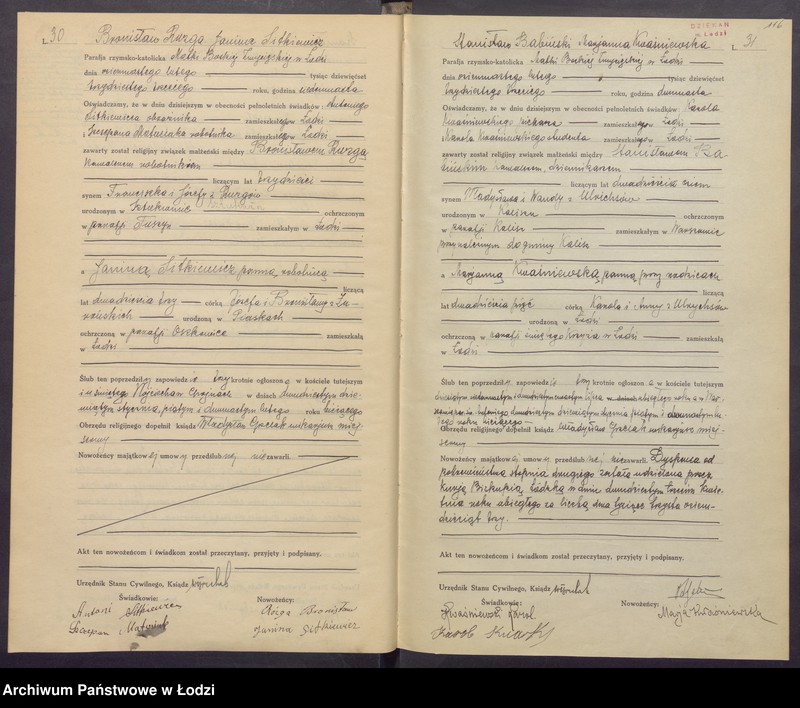 L 30
Bronisław Rózga Janina Sitkiewicz
Parafja rzymsko-katolicka Matki Boskiej Zwycięskiej w Łodzi
dnia osiemnastego lutego tysiąc dziewięćset
trzydziestego trzeciego roku, godzina siedemnasta
Oświadczamy, że w dniu dzisiejszym w obecności pełnoletnich świadków: Antoniego
Sitkiewicza zamieszkałego w Łodzi
i Szczepana Matusiaka robotnika zamieszkałego w Łodzi
zawarty został religijny związek małżeński między Bronisławem Rózgą,
kawalerem robotnikiem
liczącym lat trzydzieści
synem Franciszka i Józefy z
urodzonym w ochrzczonym
w parafji Tuszyn zamieszkałym w Łodzi
a Janiną Sitkiewicz panną robotnicą
liczącą
lat dwadzieścia trzy córką Józefa i Bronisławy z
urodzoną w Piaskach
ochrzczoną w parafji zamieszkałą
w Łodzi
Ślub ten poprzedziły zapowiedzie trzykrotnie ogłoszone w kościele tutejszym
i w Wojciecha Chojnach w dniach dwudziestym dzie-
wiątym stycznia, piątym i dwunastym lutego roku bieżącego
Obrzędu religijnego dopełnił ksiądz Władysław wikarjusz miej-
scowy
Nowożeńcy majątkowej umowy przedślubnej nie zawarli.
Akt ten nowożeńcom i świadkom został przeczytany, przyjęty i podpisany.
Urzędnik Stanu Cywilnego, Ksiądz
Świadkowie: Nowożeńcy:
Antoni Sitkiewicz Rózga Bronisław
Szczepan Matusiak Janina Sitkiewicz
DZIEKAN
w Łodzi
116
L 31
Stanisław Babiński Marjanna Kwaśniewska
Parafja rzymsko-katolicka Matki Boskiej Zwycięskiej w Łodzi
dnia osiemnastego lutego tysiąc dziewięćset
trzydziestego trzeciego roku, godzina dwunasta
Oświadczamy, że w dniu dzisiejszym w obecności pełnoletnich świadków: Karola
Kwaśniewskiego piekarza zamieszkałego w Łodzi
i Karola Kwaśniewskiego studenta zamieszkałego w Łodzi
zawarty został religijny związek małżeński między Stanisławem Ba-
bińskim kawalerem, dziennikarzem
liczącym lat dwadzieścia
synem Władysława i Wandy z Ulrichsów
urodzonym w Kaliszu ochrzczonym
w parafji Kalisz zamieszkałym w Warszawie
przynależnym do gminy Kalisz
a Marjanną Kwaśniewską, panną, przy rodzicach
liczącą
lat dwadzieścia pięć córką Karola i Anny z Ulrychsów
urodzoną w Łodzi
ochrzczoną w parafji świętego Krzyża w Łodzi zamieszkałą
w Łodzi
Ślub ten poprzedziły zapowiedzie trzykrotnie ogłoszone w kościele tutejszym
roku bieżącego
Obrzędu religijnego dopełnił ksiądz Władysław wikarjusz miej-
scowy
Nowożeńcy majątkowej umowy przedślubnej nie zawarli. Dyspensa od
pokrewieństwa stopnia drugiego została udzielona przez
Kurję Biskupią Łódzką w dniu dwudziestym trzecim
roku ubiegłego za liczbą dwa tysiące trzysta osiem-
dziesiąt trzy.
Akt ten nowożeńcom i świadkom został przeczytany, przyjęty i podpisany.
Urzędnik Stanu Cywilnego, Ksiądz
Świadkowie: Nowożeńcy:
Kwaśniewski Karol Marja Kwaśniewska
Karol
Archiwum Państwowe w Łodzi